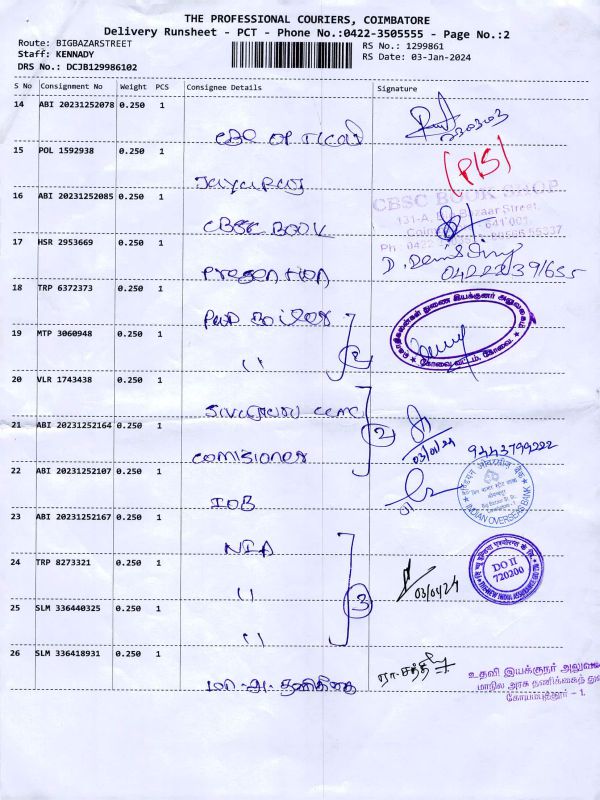 THE PROFESSIONAL COURIERS, COIMBATORE
Delivery Runsheet - PCT - Phone No.:0422-3505555 - Page No.:2
Route: BIGBAZARSTREET
Staff: KENNADY
DRS No.: DCJB129986102
RS No.: 1299861
RS Date: 03-Jan-2024
S No Consignment No Weight PCS Consignee Details Signature
14 ABI 20231252078 0.250 1
CBC OPTICAL
15 POL 1592938 0.250 1
(P/S)
Jayaraj
16 ABI 20231252085 0.250 1
CBSC BOOK SHOP
131-A, Big Bazaar Street,
CBSC BOOK
17 HSR 2953669 0.250 1
Presention
18 TRP 6372373 0.250 1
PWD Boiler
19 MTP 3060948 0.250 1
" 2
20 VLR 1743438 0.250 1
21 ABI 20231252164 0.250 1
2 03/01/24 9443799222
Comisioner
22 ABI 20231252107 0.250 1
IOB
INDIAN OVERSEAS BANK
23 ABI 20231252167 0.250 1
NIA
24 TRP 8273321 0.250 1
DO II
720200
" 3 03/01/24
25 SLM 336440325 0.250 1
"
26 SLM 336418931 0.250 1
மா.அ. தணிக்கை
உதவி இயக்குநர் அலுவல
மாநில அரசு தணிக்கைத் து
கோயமுத்தூர் - 1.